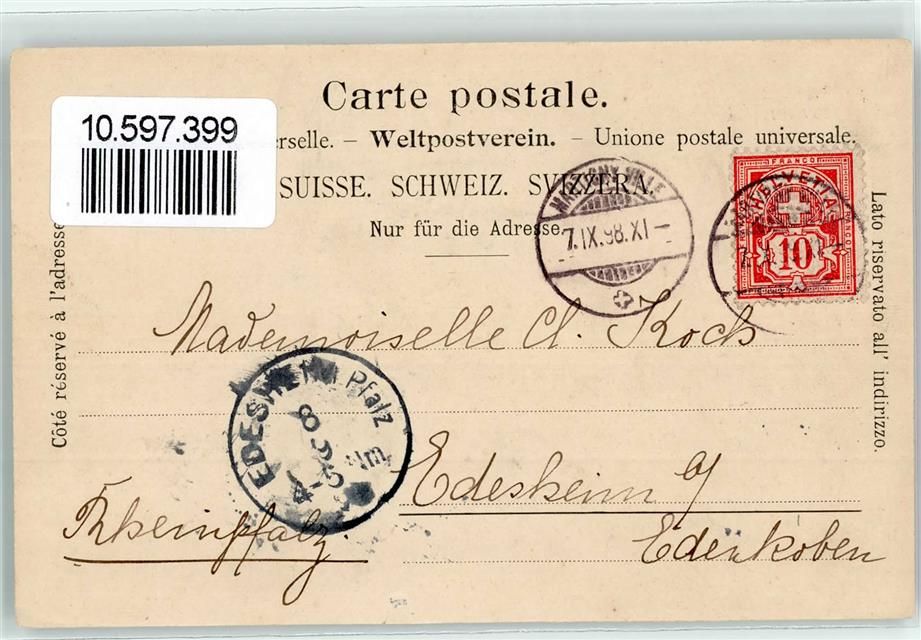 Carte postale.
10.597.399
erselle. – Weltpostverein. – Unione postale universale.
SUISSE. SCHWEIZ. SVIZZERA.
Nur für die Adresse.
Côté réservé à l'adresse
Lato riservato all' indirizzo.
VILLE
7.IX.98.XI–
FRANCO
HELVETIA
FRANCO
10
Mademoiselle Cl. Koch
EDESHEIM Pfalz
8 9
4-5 Nm
Edesheim a/
Rheinpfalz.
Edenkoben